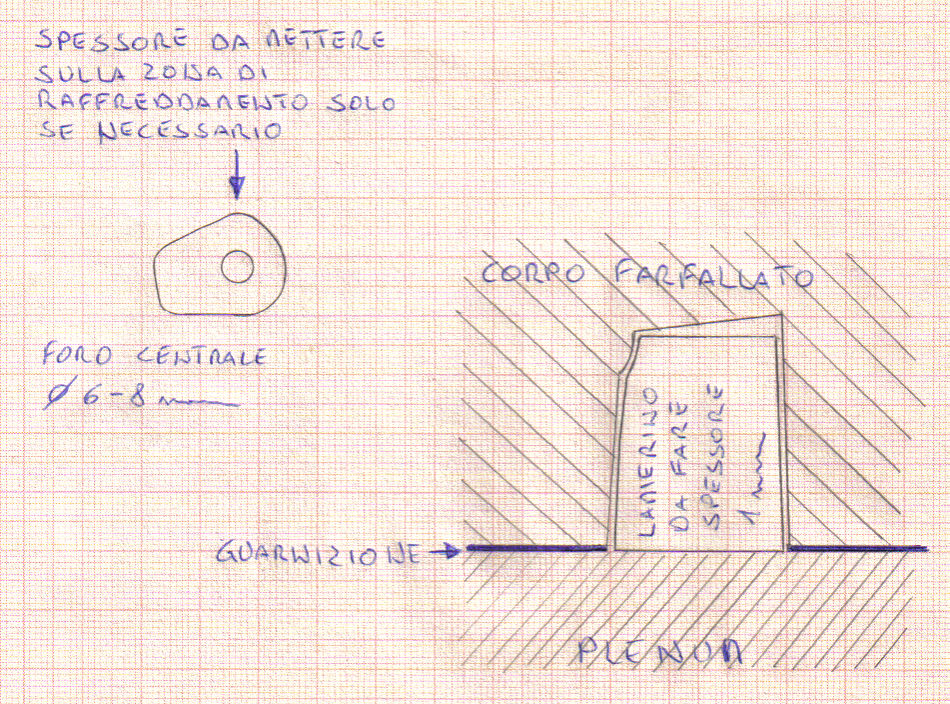 SPESSORE DA METTERE
SULLA ZONA DI
RAFFREDDAMENTO SOLO
SE NECESSARIO
FORO CENTRALE
Ø 6-8 mm
CORPO FARFALLATO
LAMIERINO
DA FARE
SPESSORE
1 mm
GUARNIZIONE
PLENUM